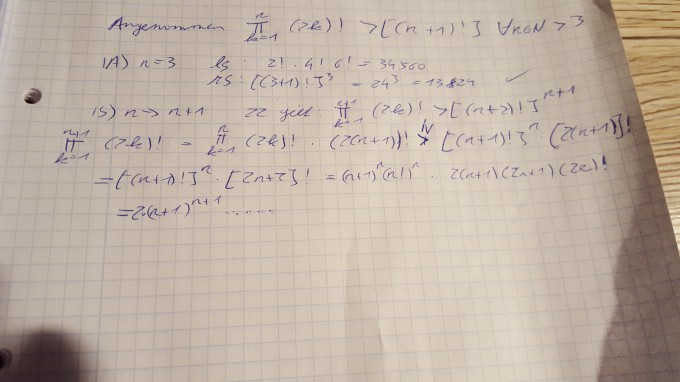 Angenommen ∏_{k=1}^{n} (2k)! > [(n+1)!] ∀n∈N > 3
IA) n=3 ls: 2! · 4! 6! = 34560
rs: [(3+1)!]^3 = 24^3 = 13824 ✓
IS) n → n+1 zz gilt: ∏_{k=1}^{n+1} (2k)! > [(n+2)!]^{n+1}
∏_{k=1}^{n+1} (2k)! = ∏_{k=1}^{n} (2k)! · (2(n+1))! >^{IV} [(n+1)!]^n · [2(n+1)]!
= [(n+1)!]^n · [2n+2]! = (n+1)^n (n!)^n · 2(n+1)(2n+1)(2n)!
= 2·(n+1)^{n+1} ......